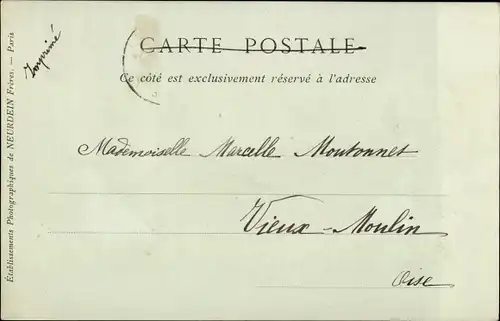 CARTE POSTALE
Ce côté est exclusivement réservé à l'adresse
Imprimé
Mademoiselle Marcelle Moutonnet
Vieux-Moulin
Oise
Établissements Photographiques de NEURDEIN Frères. — Paris